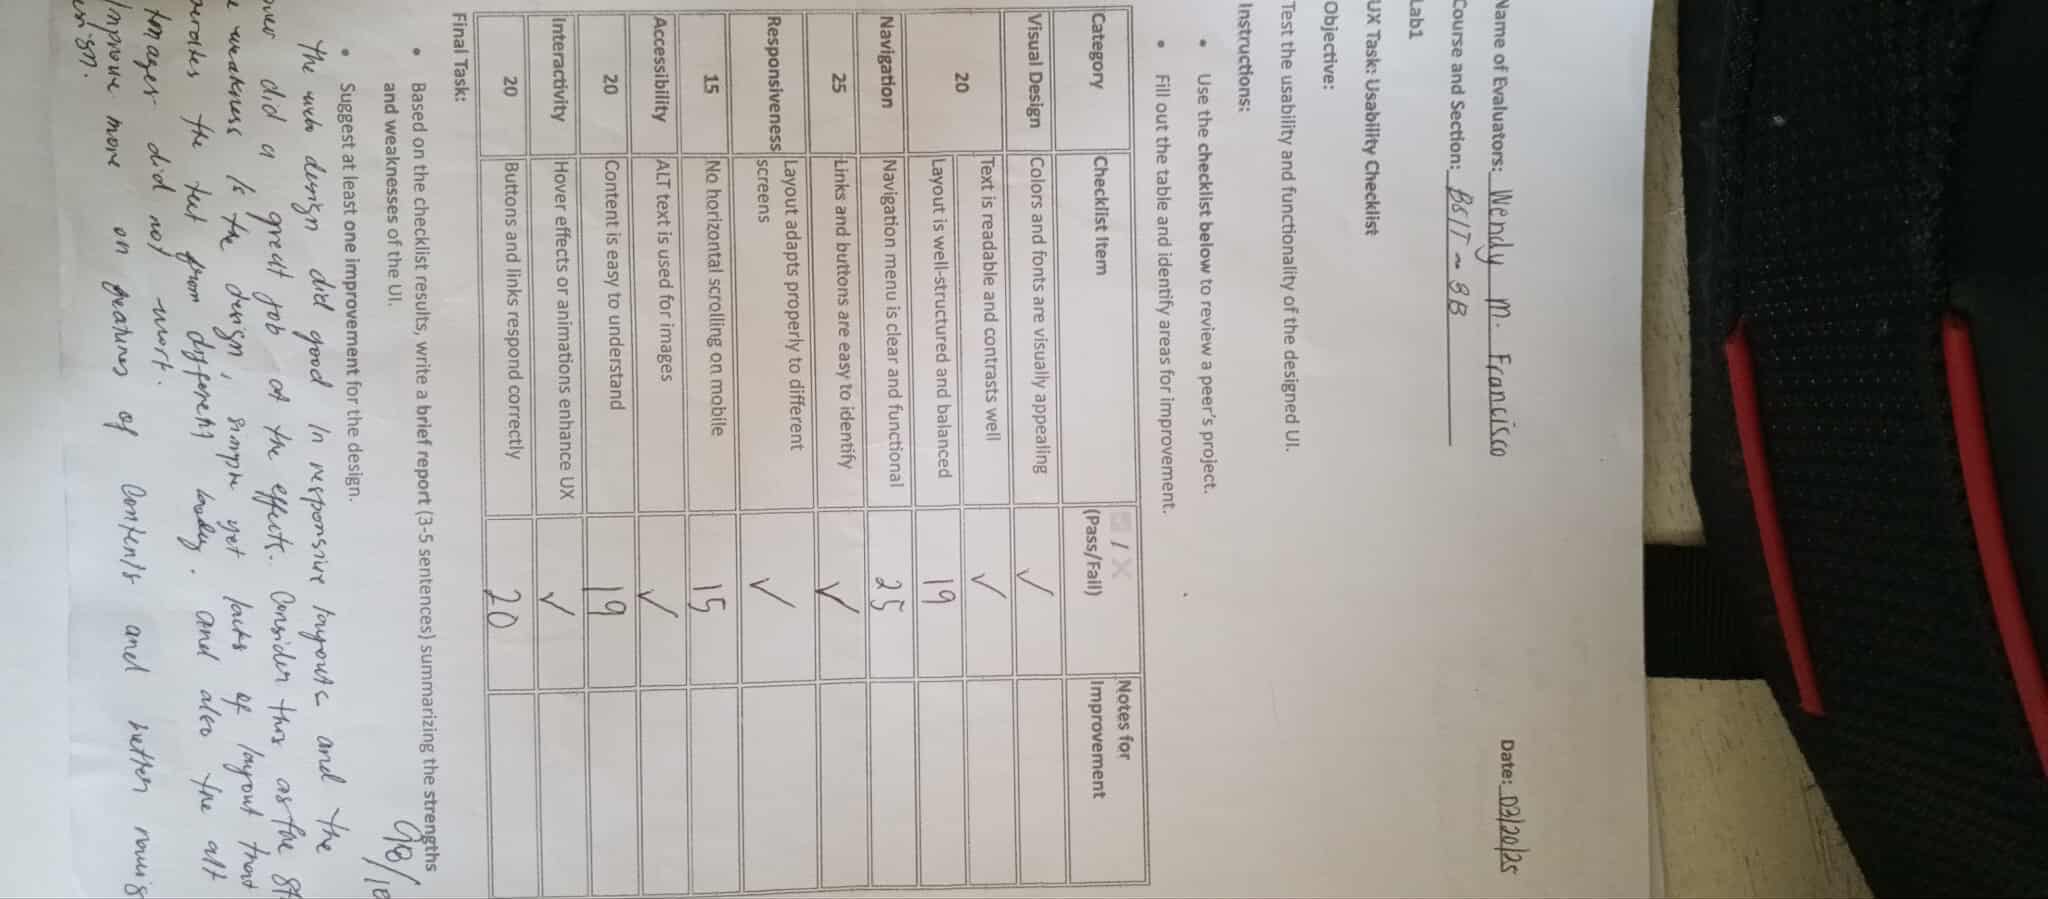 Name of Evaluators: Wendy M. Francisco
Date: 03/20/25
Course and Section: BSIT - 3B
Lab1
UX Task: Usability Checklist
Objective:
Test the usability and functionality of the designed UI.
Instructions:
• Use the checklist below to review a peer's project.
• Fill out the table and identify areas for improvement.
Category Checklist Item ✅ / ❌ (Pass/Fail) Notes for Improvement
Visual Design Colors and fonts are visually appealing ✓
20 Text is readable and contrasts well ✓
Layout is well-structured and balanced 19
Navigation Navigation menu is clear and functional 25
25 Links and buttons are easy to identify ✓
Responsiveness Layout adapts properly to different screens ✓
15 No horizontal scrolling on mobile 15
Accessibility ALT text is used for images ✓
20 Content is easy to understand 19
Interactivity Hover effects or animations enhance UX ✓
20 Buttons and links respond correctly 20
Final Task:
• Based on the checklist results, write a brief report (3-5 sentences) summarizing the strengths
and weaknesses of the UI.
98/10
• Suggest at least one improvement for the design.
The web design did good In responsive layouts and the
did a great job at the effects. Consider this as the
weakness Is the design, simple yet lacks of layout that
the text from different and also the alt
did not work.
Improve more on features of Contents and better